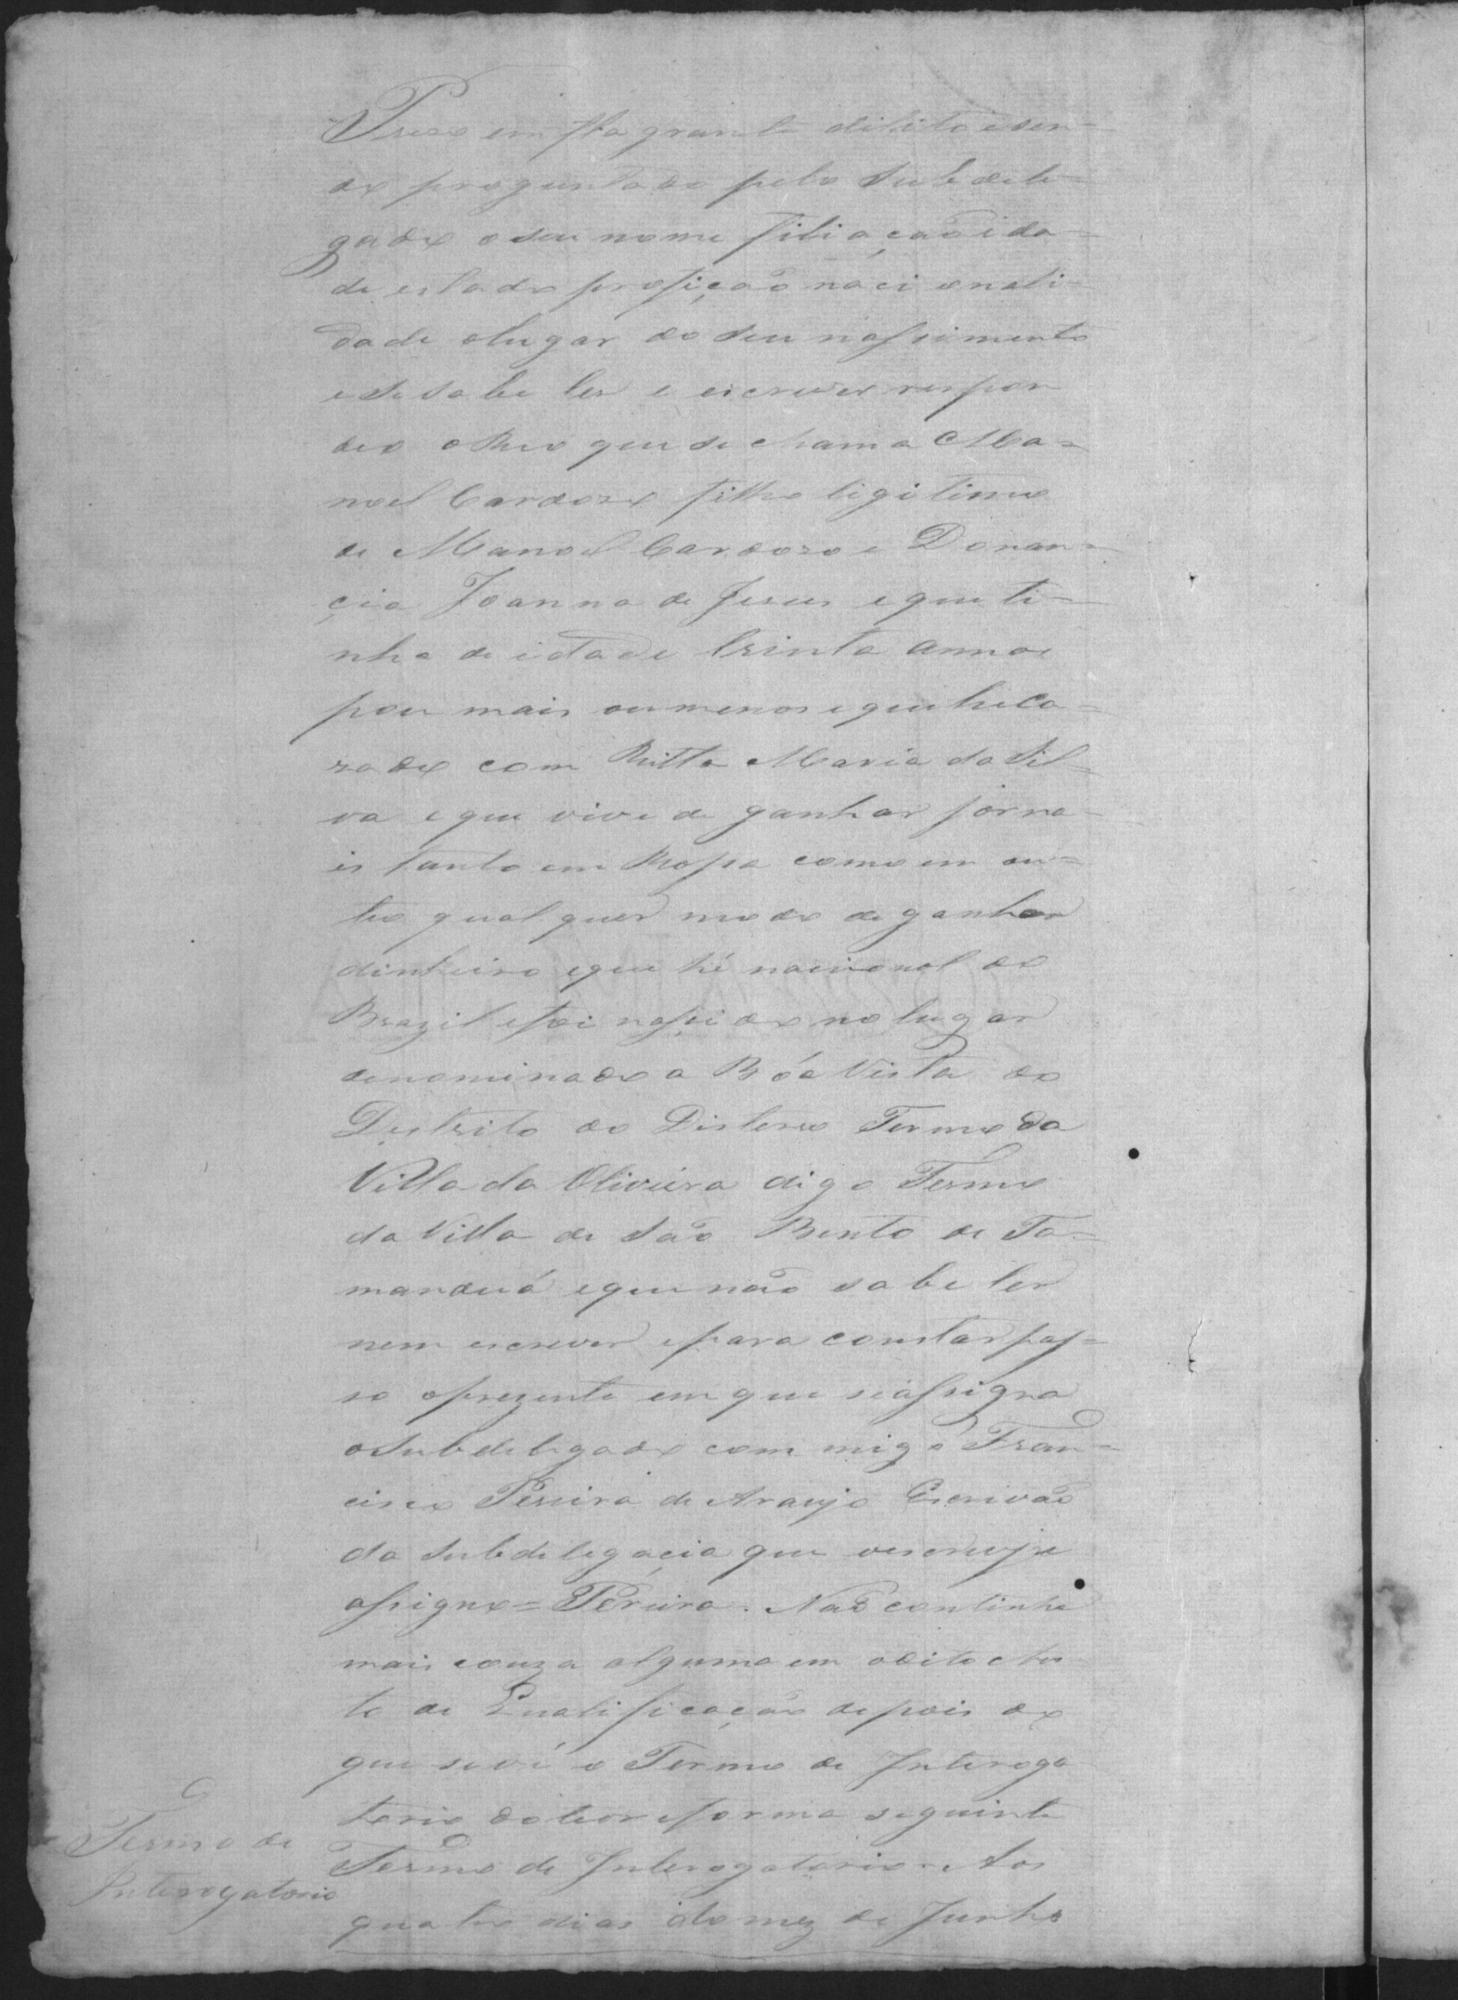 Prezo em flagrante dilito e sen=
do proguntado pelo Subdele=
gado o seu nome filiação ida=
de estado profição nacionali=
dade o lugar do seu nassimento
e se sabe ler e escrever respon
deo o Reo que se chama Ma=
noel Cardozo filho ligitimo
de Manoel Cardozo e Donan=
çia Joanna de Jesus e que ti=
nha de idade trinta annos
pou mais ou menos e que he ca=
zado com Ritta Maria da Sil=
va e que vive de ganhar jorna=
is tanto em Rossa como em ou=
tro qual quer modo de ganhar
dinheiro e que hé nacional do
Brazil e foi nascido no lugar
denominado a Bôa Vista do
Destrito do Disterro Termo da
Villa da Oliveira digo Termo
da Villa de São Bento de Ta=
manduá e que não sabe ler
nem escrever e para constar pas=
so o prezente em que se assigna
o Subdelegado com migo Fran=
cisco Pereira de Araujo Escrivão
da Subdelegaçia que o escrevy e
assigno = Pereira. Não continha
mais couza alguma em o dito Au
to de Qualificação depois do
que se vê o Termo de Interoga
torio do theor e forma seguinte
Termo de Interogatorio = Aos
quatro dias do mez de Junho
Termo de
Interogatorio